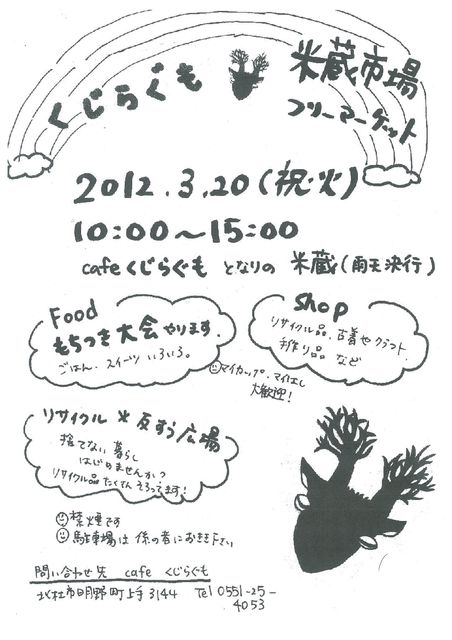 くじらぐも
米蔵市場
フリーマーケット
2012.3.20(祝・火)
10:00〜15:00
cafeくじらぐも となりの 米蔵(雨天決行)
Food
もちつき大会やります.
ごはん.スイーツ いろいろ。
Shop
リサイクル品.古着やクラフト.
手作り品 など
マイカップ.マイはし
大歓迎!
リサイクル
広場
捨てない暮らし
はじめませんか?
リサイクル品たくさんそろってます!
禁煙です
駐車場は係の者におききください
問い合わせ先 cafe くじらぐも
北杜市明野町上手3144 Tel 0551-25-
4053